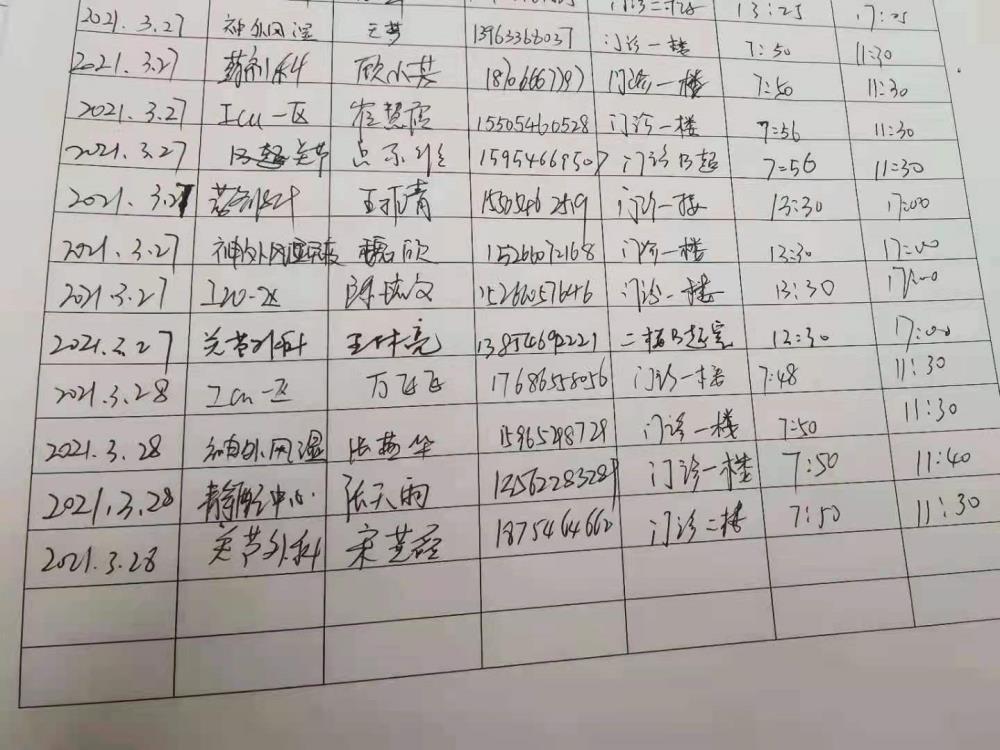 门诊二 13:25 17:25
2021.3.27 神外风湿 13963368037 门诊一楼 7:50 11:30
2021.3.27 药剂科 顾小英 门诊一楼 7:50 11:30
2021.3.27 ICU一区 崔慧 15505460528 门诊一楼 7:56 11:30
2021.3.27 关节 15954669507 门诊B超 7:56 11:30
2021.3.27 药剂科 青 门诊一楼 13:30 17:00
2021.3.27 神外风湿 欣 15266072168 门诊一楼 13:30 17:00
2021.3.27 陈 15266057646 门诊一楼 13:30 17:00
2021.3.27 关节外科 王 亮 13854692221 二楼B超室 13:30 17:00
2021.3.28 ICU一区 万飞飞 17686558056 门诊一楼 7:48 11:30
2021.3.28 神外风湿 张燕华 15965298729 门诊一楼 7:50 11:30
2021.3.28 静配中心 张天雨 门诊一楼 7:50 11:40
2021.3.28 关节外科 宋芝 1875464662 门诊二楼 7:50 11:30